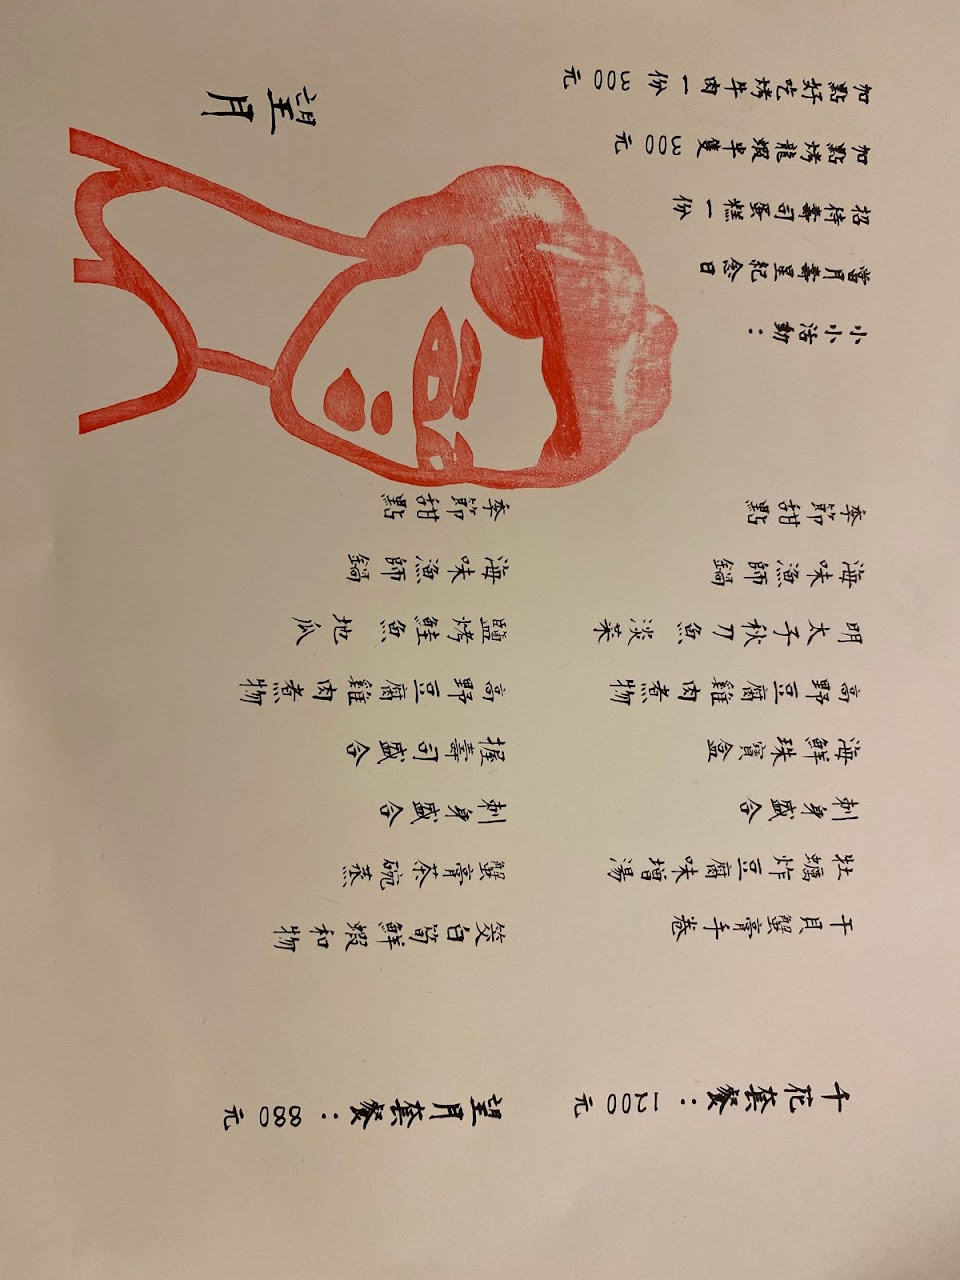 千花套餐：1200元
干貝蟹膏手卷
牡蠣炸豆腐味增湯
刺身盛合
海鮮珠寶盒
高野豆腐雞肉煮物
明太子秋刀魚淡菜
海味漁師鍋
季節甜點
望月套餐：880元
筊白筍鮮蝦和物
蟹膏茶碗蒸
刺身盛合
握壽司盛合
高野豆腐雞肉煮物
鹽烤鮭魚地瓜
海味漁師鍋
季節甜點
小小活動：
當月壽星紀念日
招待壽司蛋糕一份
加點烤龍蝦半隻300元
加點好吃烤牛肉一份300元
望月